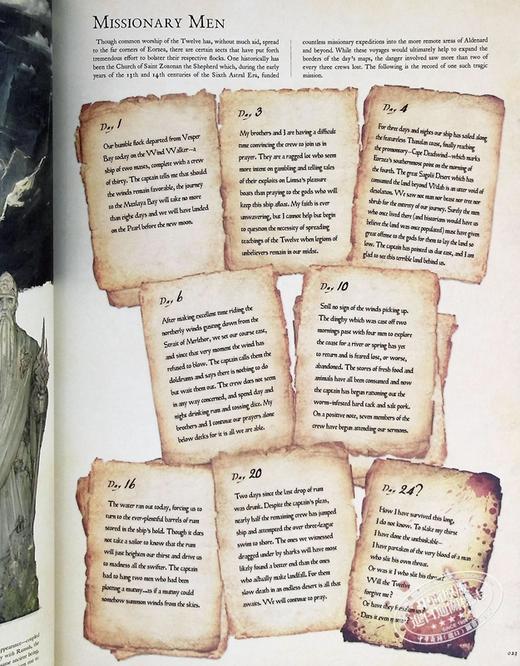 MISSIONARY MEN
Though common worship of the Twelve has, without much aid, spread
to the far corners of Eorzea, there are certain sects that have put forth
tremendous effort to bolster their respective flocks. One historically has
been the Church of Saint Zozonan the Shepherd which, during the early
years of the 13th and 14th centuries of the Sixth Astral Era, funded
countless missionary expeditions into the more remote areas of Aldenard
and beyond. While these voyages would ultimately help to expand the
borders of the day's maps, the danger involved saw more than two of
every three crews lost. The following is the record of one such tragic
mission.
Day 1
Our humble flock departed from Vesper
Bay today on the Wind Walker—a
ship of two masts, complete with a crew
of thirty. The captain tells me that should
the winds remain favorable, the journey
to the Mazlaya Bay will take no more
than eight days and we will have landed
on the Pearl before the new moon.
Day 3
My brothers and I are having a difficult
time convincing the crew to join us in
prayer. They are a ragged lot who seem
more intent on gambling and telling tales
of their exploits on Limsa's pleasure
boats than praying to the gods who will
keep this ship afloat. My faith is ever
unwavering, but I cannot help but begin
to question the necessity of spreading
teachings of the Twelve when legions of
unbelievers remain in our midst.
Day 4
For three days and nights our ship has sailed along
the featureless Thanalan coast, finally reaching
the promontory—Cape Deadwind—which marks
Eorzea's southernmost point on the morning of
the fourth. The great Sagolii Desert which has
consumed the land beyond Uldah is an utter void of
desolation. We saw not man nor beast nor tree nor
shrub for the entirety of our journey. Surely the men
who once lived there (and historians would have us
believe the land was once populated) must have given
great offense to the gods for them to lay the land so
low. The captain has pointed us due east, and I am
glad to see this terrible land behind us.
Day 6
After making excellent time riding the
northerly winds gusting down from the
Strait of Merlthor, we set our course east,
and since that very moment the wind has
refused to blow. The captain calls them the
doldrums and says there is nothing to do
but wait them out. The crew does not seem
in any way concerned, and spend day and
night drinking rum and tossing dice. My
brothers and I continue our prayers alone
below decks for it is all we are able.
Day 10
Still no sign of the winds picking up.
The dinghy which was cast off two
mornings past with four men to explore
the coast for a river or spring has yet
to return and is feared lost, or worse,
abandoned. The stores of fresh food and
animals have all been consumed and now
the captain has begun rationing out the
worm-infested hard tack and salt pork.
On a positive note, seven members of the
crew have begun attending our sermons.
Day 16
The water ran out today, forcing us to
turn to the ever-plentiful barrels of rum
stored in the ship's hold. Though it does
not take a sailor to know that the rum
will just heighten our thirst and drive us
to madness all the swifter. The captain
had to hang two men who had been
plotting a mutiny—as if a mutiny could
somehow summon winds from the skies.
Day 20
Two days since the last drop of rum
was drunk. Despite the captain's pleas,
nearly half the remaining crew has jumped
ship and attempted the over three-league
swim to shore. The ones we witnessed
dragged under by sharks will have most
likely found a better end than the ones
who actually make landfall. For them
slow death in an endless desert is all that
awaits. We will continue to pray.
Day 24?
How I have survived this long,
I do not know. To slake my thirst
I have done the unthinkable—
I have partaken of the very blood of a man
who slit his own throat.
Or was it I who slit his throat?
Will the Twelve
forgive me?
Or have they forsaken
Does it even
023